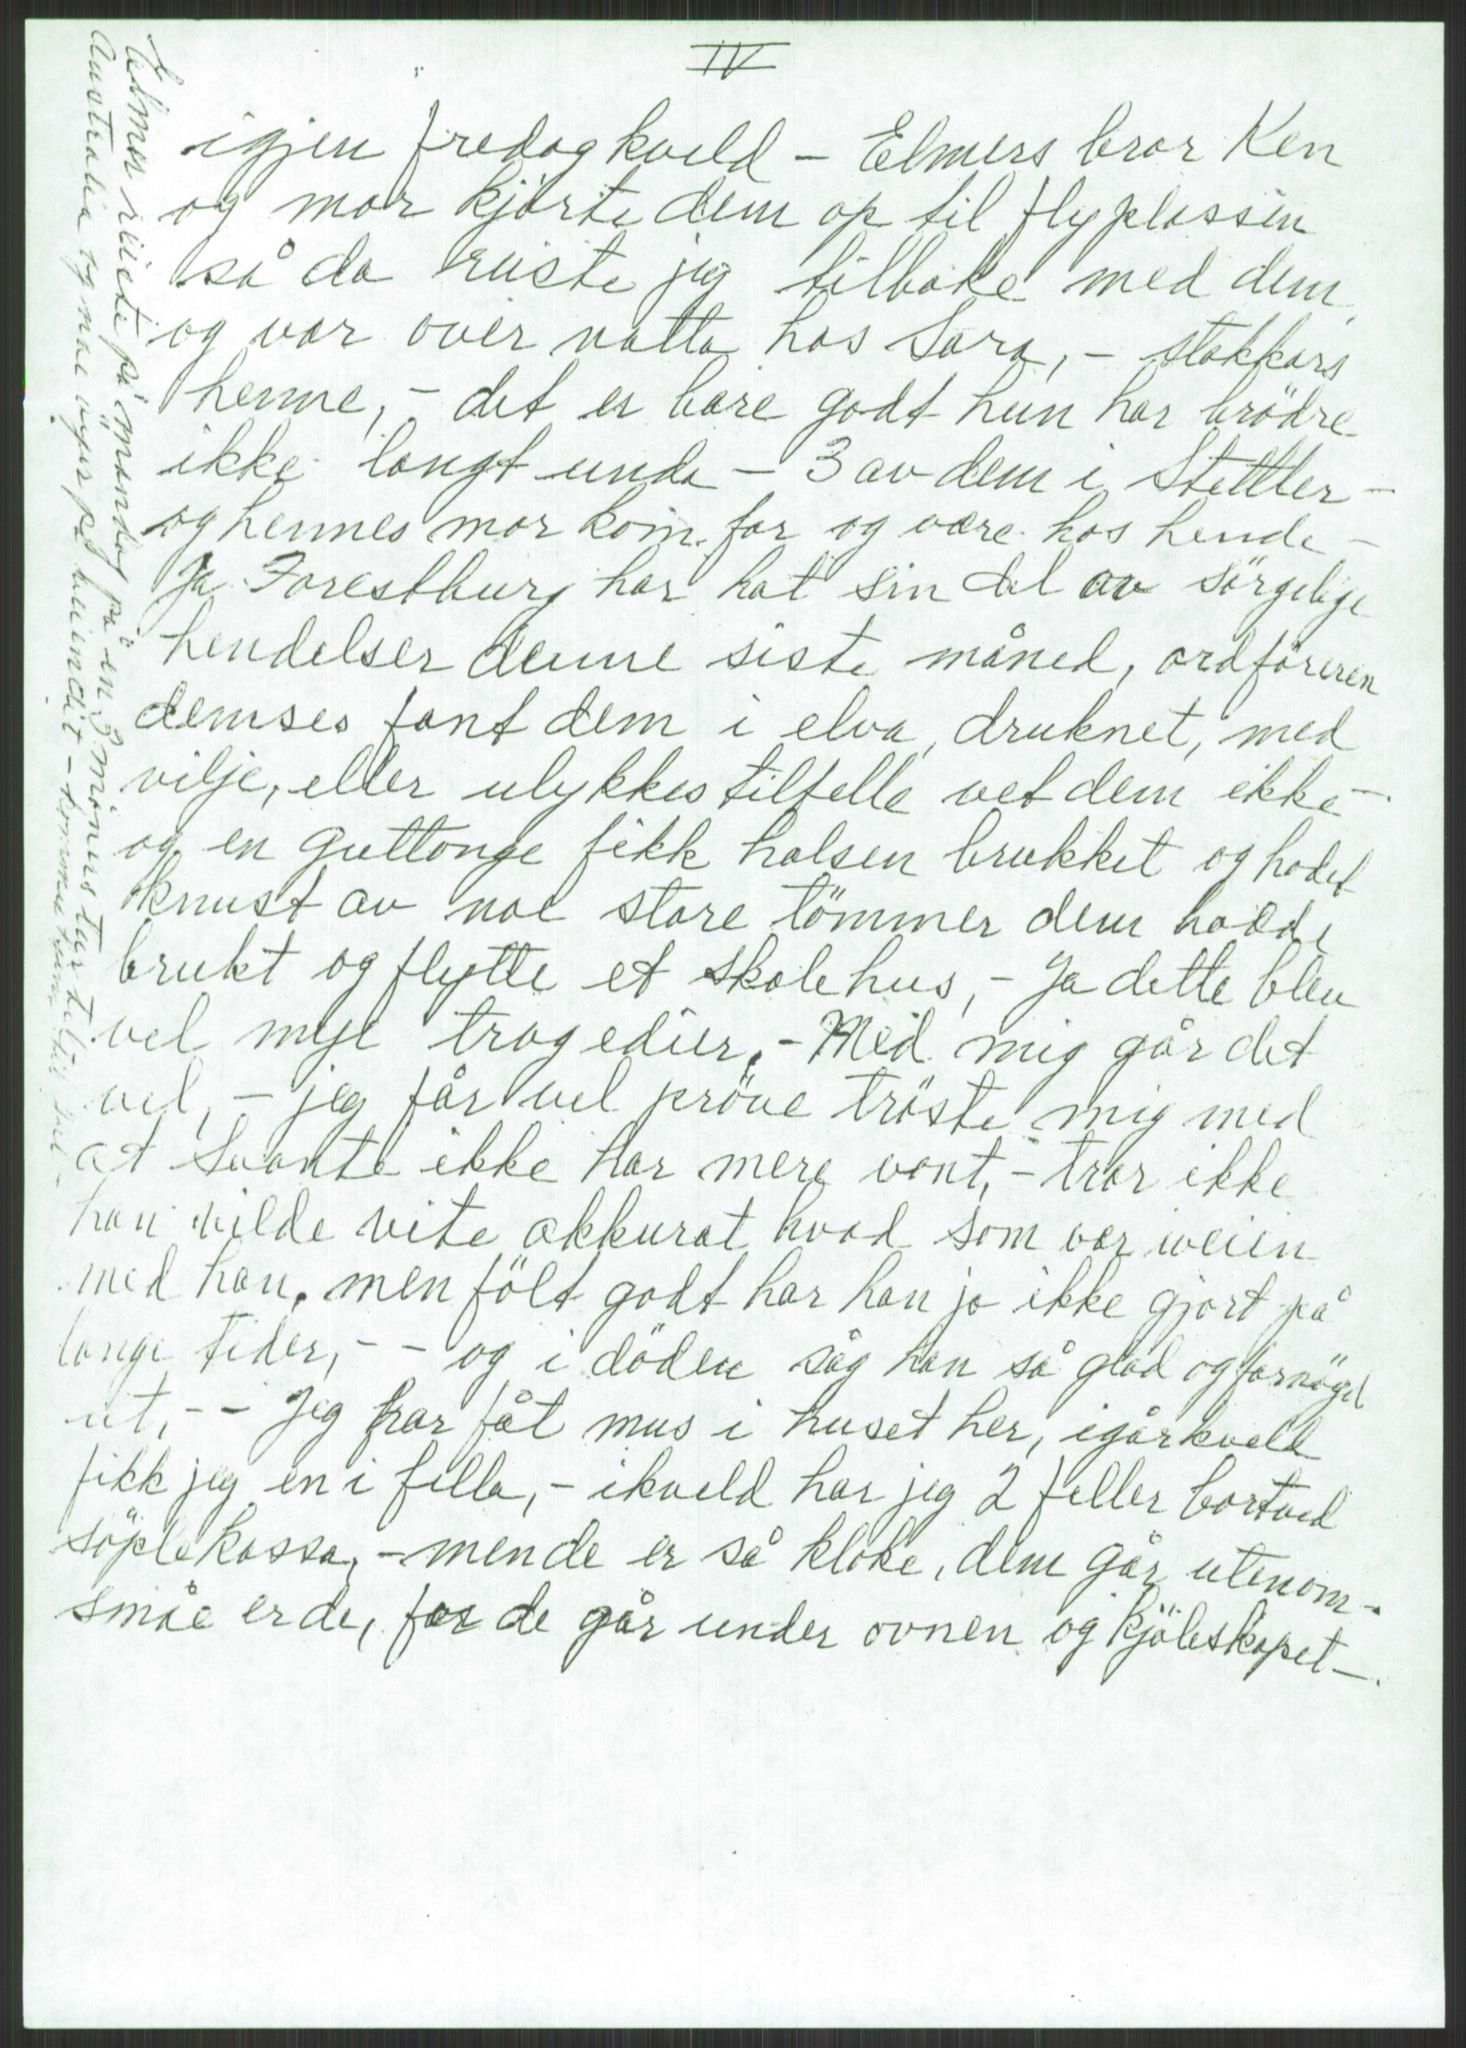 IV
igjen fredag kveld - Elmers bror Ken
og mor kjörte dem op til flyplassen
så da reiste jeg tilbake med dem,
og var over natta hos Sara, - stakkars
henne, - det er bare godt hun har brödre
ikke langt unda - 3 av dem i Stettler -
og hennes mor kom for og være hos hende -
Ja Forestburg har hat sin del av sörgelige
hendelser denne siste måned, ordföreren
demses fant dem i elva, druknet, med
vilje, eller ulykkestilfelle vet dem ikke -
og en guttonge fikk halsen brukket og hodet
knust av noe store tömmer dem hadde
brukt og flytte et skolehus, - Ja dette blev
vel mye tragedier. - Med mig går det
vel, - jeg får vel pröve tröste mig med
at Svante ikke har mere vont, - tror ikke
han vilde vite akkurat hvad som var iveien
med han, men fölt godt har han jo ikke gjort på
lange tider, - - og i döden såg han så glad og fornöyd
ut, - - Jeg har fåt mus i huset her, igårkveld
fikk jeg en i fella, - ikveld har jeg 2 feller bortved
söplekassa, - men de er så kloke, dem går utenom -
småe er de, for de går under ovnen og kjöleskapet -
Elmer reiste på måndag på en 3 måners tur til
Australia og noe øyer på hveiendit - kommer hjem til jul -